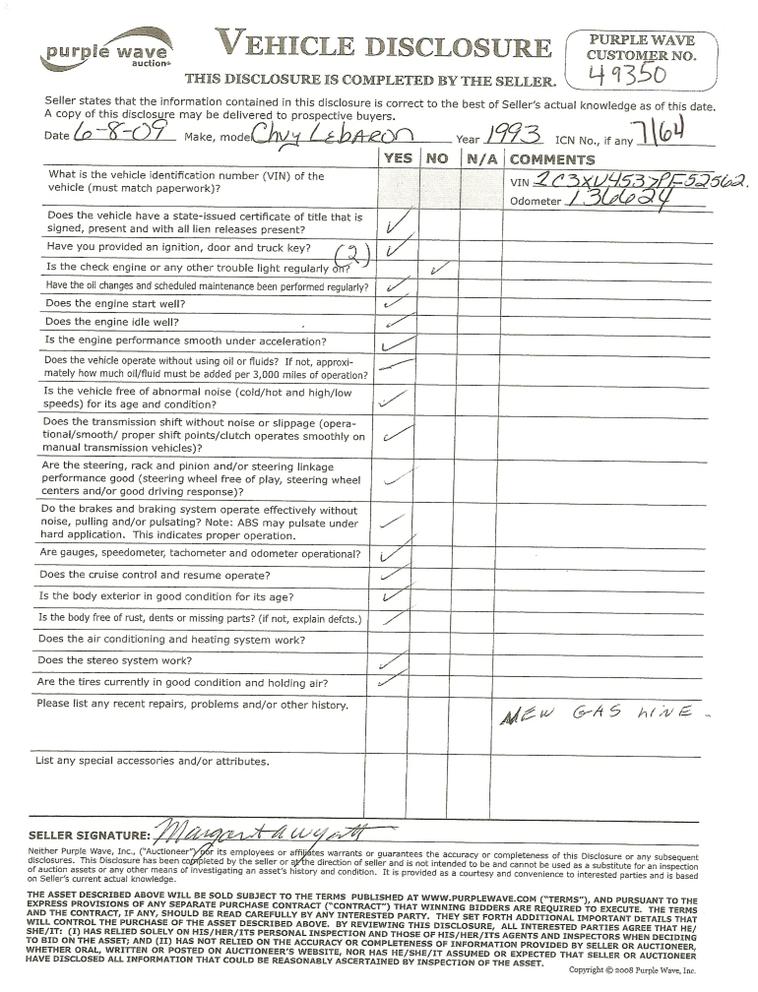 purple wave
auction®
VEHICLE DISCLOSURE
THIS DISCLOSURE IS COMPLETED BY THE SELLER.
PURPLE WAVE
CUSTOMER NO.
49350
Seller states that the information contained in this disclosure is correct to the best of Seller's actual knowledge as of this date.
A copy of this disclosure may be delivered to prospective buyers.
Date 6-8-09 Make, model Chvy LEBARON Year 1993 ICN No., if any 7164
YES NO N/A COMMENTS
What is the vehicle identification number (VIN) of the
vehicle (must match paperwork)?
VIN 1C3XU4537PF52562.
Odometer 136624
Does the vehicle have a state-issued certificate of title that is
signed, present and with all lien releases present?
Have you provided an ignition, door and truck key? (2)
Is the check engine or any other trouble light regularly on?
Have the oil changes and scheduled maintenance been performed regularly?
Does the engine start well?
Does the engine idle well?
Is the engine performance smooth under acceleration?
Does the vehicle operate without using oil or fluids? If not, approxi-
mately how much oil/fluid must be added per 3,000 miles of operation?
Is the vehicle free of abnormal noise (cold/hot and high/low
speeds) for its age and condition?
Does the transmission shift without noise or slippage (opera-
tional/smooth/ proper shift points/clutch operates smoothly on
manual transmission vehicles)?
Are the steering, rack and pinion and/or steering linkage
performance good (steering wheel free of play, steering wheel
centers and/or good driving response)?
Do the brakes and braking system operate effectively without
noise, pulling and/or pulsating? Note: ABS may pulsate under
hard application. This indicates proper operation.
Are gauges, speedometer, tachometer and odometer operational?
Does the cruise control and resume operate?
Is the body exterior in good condition for its age?
Is the body free of rust, dents or missing parts? (if not, explain defcts.)
Does the air conditioning and heating system work?
Does the stereo system work?
Are the tires currently in good condition and holding air?
Please list any recent repairs, problems and/or other history.
NEW GAS LINE.
List any special accessories and/or attributes.
SELLER SIGNATURE: Margaret A Wyatt
Neither Purple Wave, Inc., ("Auctioneer") nor its employees or affiliates warrants or guarantees the accuracy or completeness of this Disclosure or any subsequent
disclosures. This Disclosure has been completed by the seller or at the direction of seller and is not intended to be and cannot be used as a substitute for an inspection
of auction assets or any other means of investigating an asset's history and condition. It is provided as a courtesy and convenience to interested parties and is based
on Seller's current actual knowledge.
THE ASSET DESCRIBED ABOVE WILL BE SOLD SUBJECT TO THE TERMS PUBLISHED AT WWW.PURPLEWAVE.COM ("TERMS"), AND PURSUANT TO THE
EXPRESS PROVISIONS OF ANY SEPARATE PURCHASE CONTRACT ("CONTRACT") THAT WINNING BIDDERS ARE REQUIRED TO EXECUTE. THE TERMS
AND THE CONTRACT, IF ANY, SHOULD BE READ CAREFULLY BY ANY INTERESTED PARTY. THEY SET FORTH ADDITIONAL IMPORTANT DETAILS THAT
WILL CONTROL THE PURCHASE OF THE ASSET DESCRIBED ABOVE. BY REVIEWING THIS DISCLOSURE, ALL INTERESTED PARTIES AGREE THAT HE/
SHE/IT: (I) HAS RELIED SOLELY ON HIS/HER/ITS PERSONAL INSPECTION AND THOSE OF HIS/HER/ITS AGENTS AND INSPECTORS WHEN DECIDING
TO BID ON THE ASSET; AND (II) HAS NOT RELIED ON THE ACCURACY OR COMPLETENESS OF INFORMATION PROVIDED BY SELLER OR AUCTIONEER,
WHETHER ORAL, WRITTEN OR POSTED ON AUCTIONEER'S WEBSITE, NOR HAS HE/SHE/IT ASSUMED OR EXPECTED THAT SELLER OR AUCTIONEER
HAVE DISCLOSED ALL INFORMATION THAT COULD BE REASONABLY ASCERTAINED BY INSPECTION OF THE ASSET.
Copyright © 2008 Purple Wave, Inc.